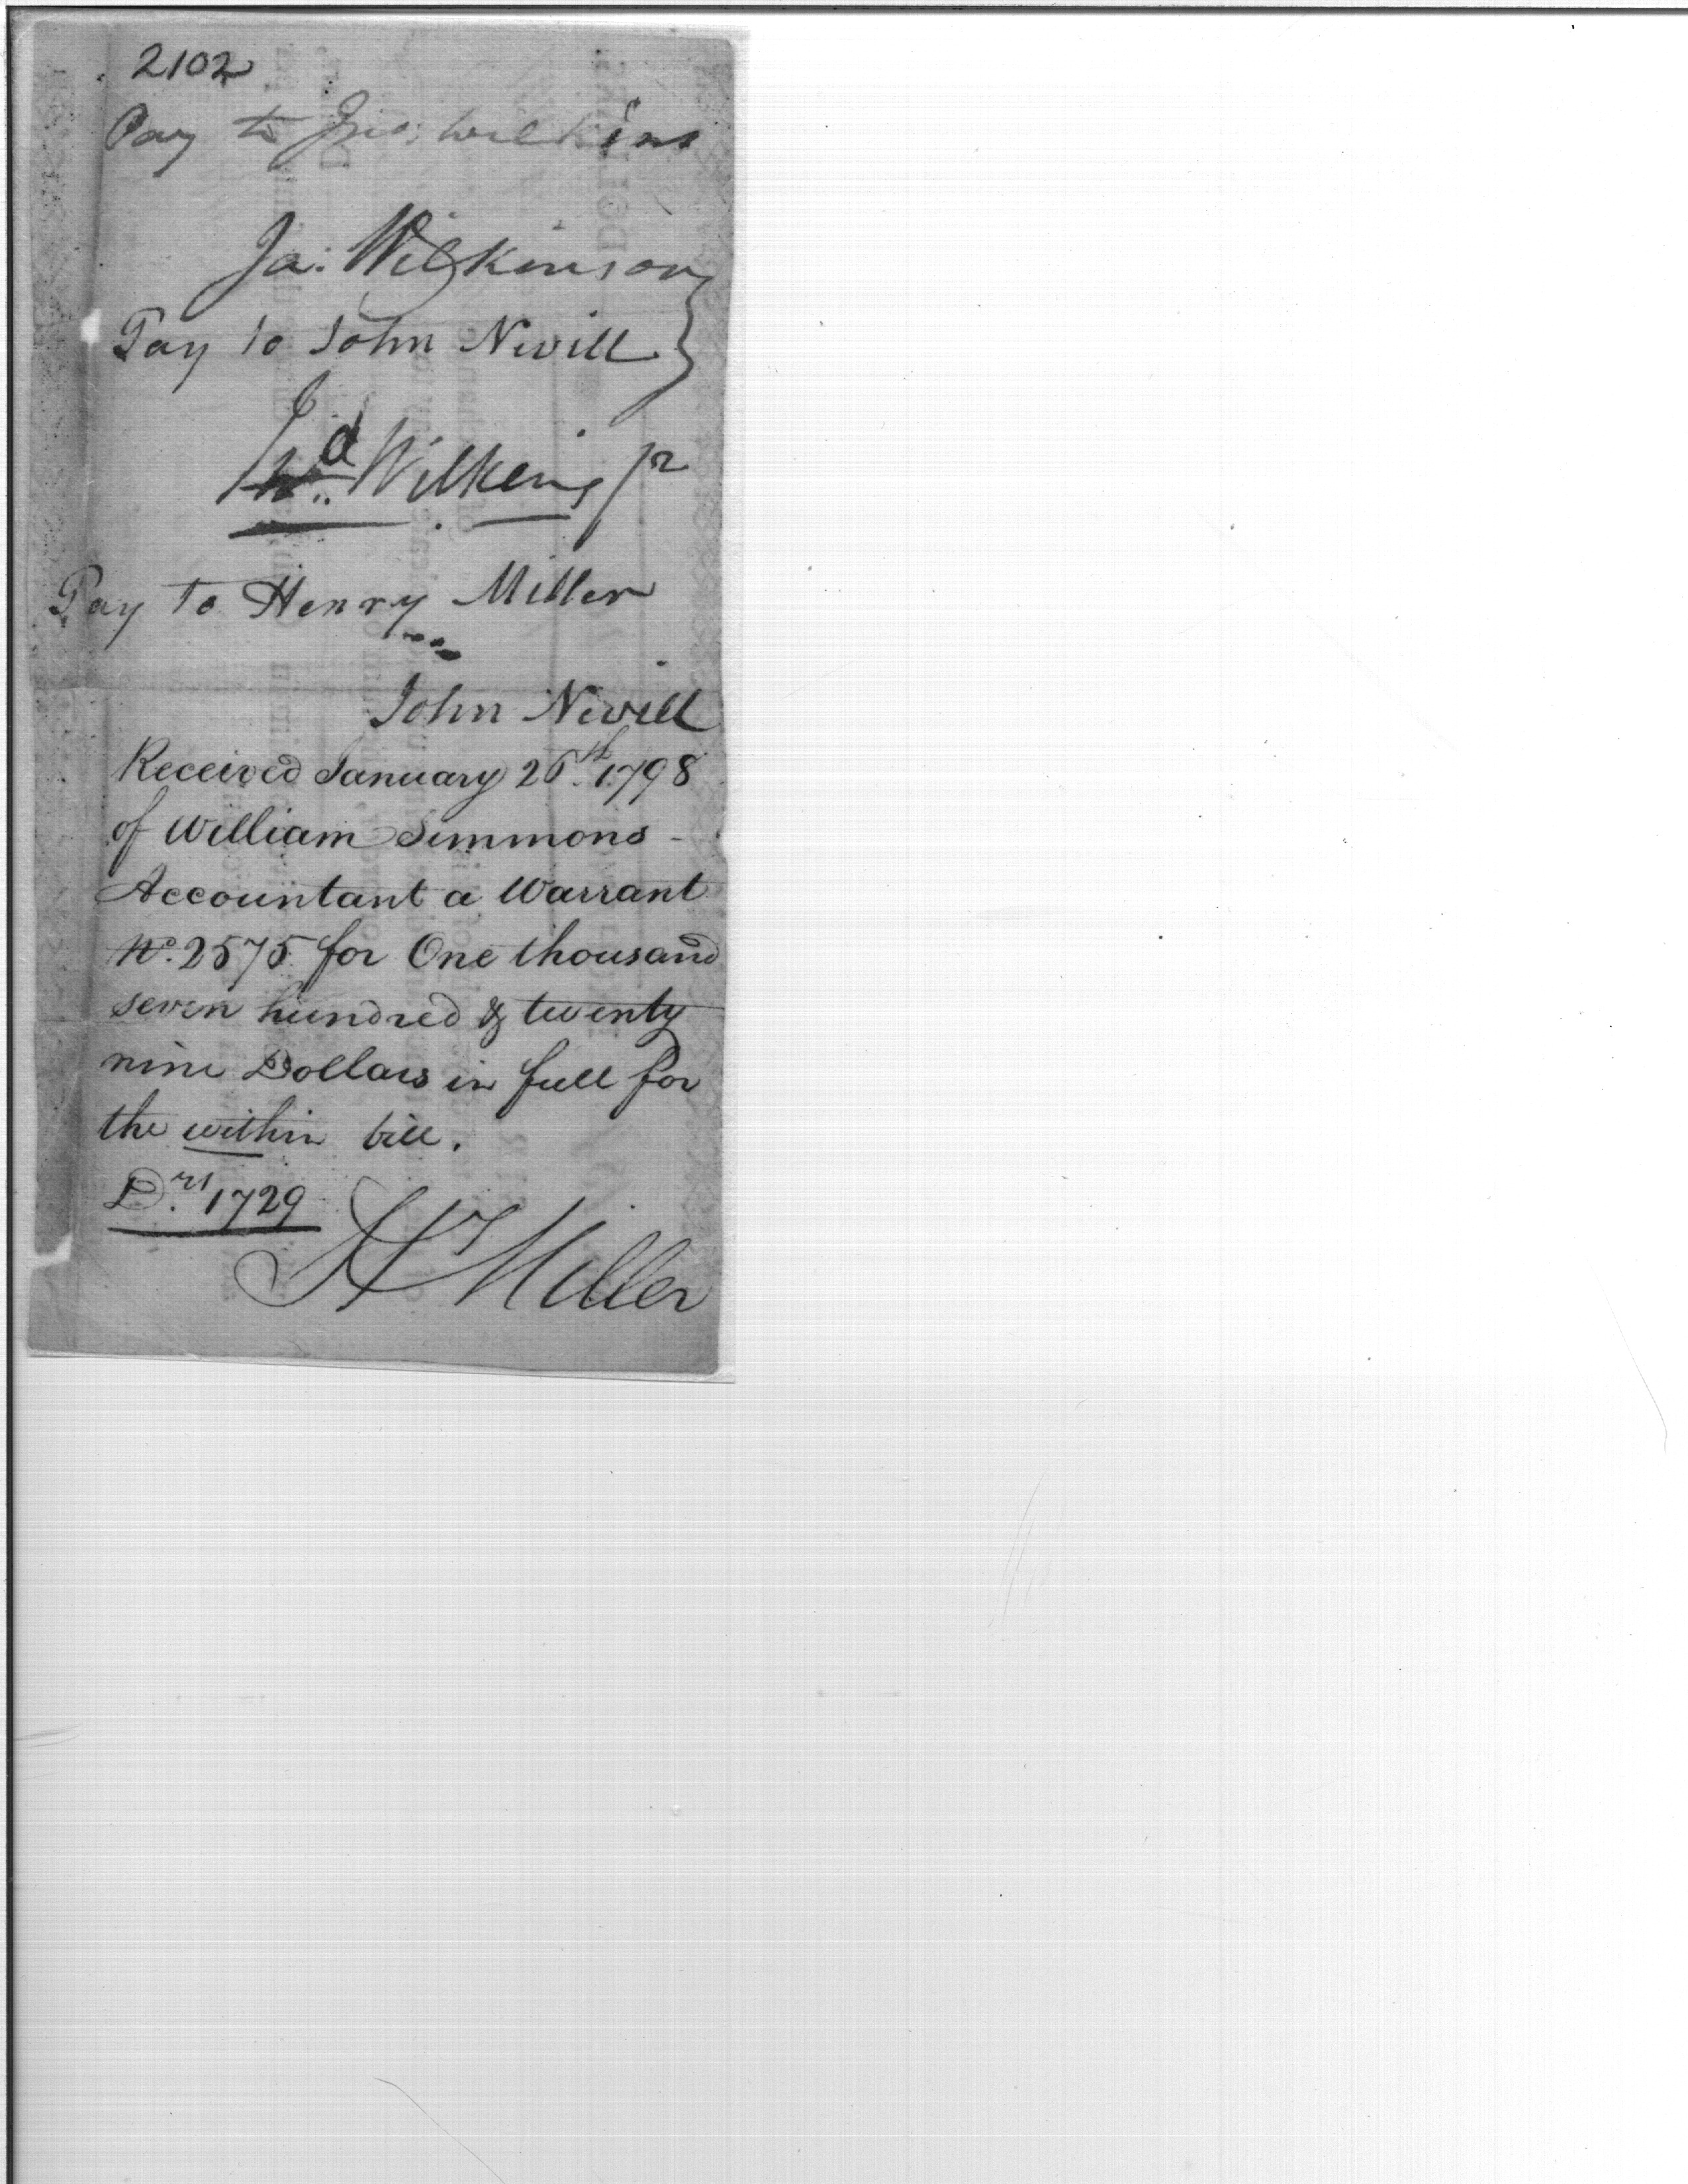 2102
Pay to Jno. Wilkins
Ja: Wilkinson
Pay to John Nevill
Wilkins jr
Pay to Henry Miller
John Nevill
Received January 26th. 1798
of William Simmons -
Accountant a Warrant
No. 2575 for One thousand
seven hundred & twenty
nine Dollars in full for
the within bill.
Drs. 1729
Hy Miller